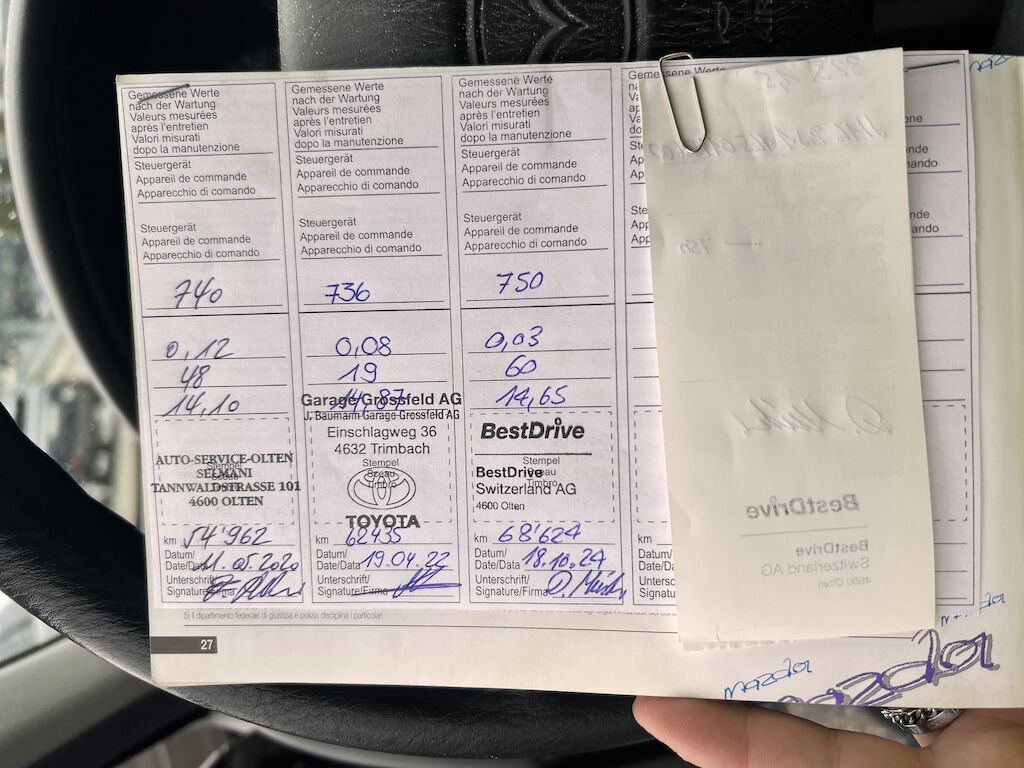 Gemessene Werte
nach der Wartung
Valeurs mesurées
après l'entretien
Valori misurati
dopo la manutenzione
Steuergerät
Appareil de commande
Apparecchio di comando
Steuergerät
Appareil de commande
Apparecchio di comando
740
0,12
48
14,10
AUTO-SERVICE-OLTEN
SELMANI
TANNWALDSTRASSE 101
4600 OLTEN
Stempel
km 54'962
Datum/
Date/Data 11.05.2020
Unterschrift/
Signature/Firma
Gemessene Werte
nach der Wartung
Valeurs mesurées
après l'entretien
Valori misurati
dopo la manutenzione
Steuergerät
Appareil de commande
Apparecchio di comando
Steuergerät
Appareil de commande
Apparecchio di comando
736
0,08
19
14,87
Garage Grossfeld AG
J. Baumann Garage Grossfeld AG
Einschlagweg 36
4632 Trimbach
Stempel
Sceau
Timbro
TOYOTA
km 62435
Datum/
Date/Data 19.04.22
Unterschrift/
Signature/Firma
Gemessene Werte
nach der Wartung
Valeurs mesurées
après l'entretien
Valori misurati
dopo la manutenzione
Steuergerät
Appareil de commande
Apparecchio di comando
Steuergerät
Appareil de commande
Apparecchio di comando
750
0,03
60
14,65
BestDrive
Stempel
BestDrive
Sceau
Timbro
Switzerland AG
4600 Olten
km 68'624
Datum/
Date/Data 18.10.24
Unterschrift/
Signature/Firma
Gemessene Werte
km
750
BestDrive
BestDrive
Switzerland AG
4600 Olten
5) Il dipartimento federale di giustizia e polizia disciplina i particolari.
27
mazda
mazda